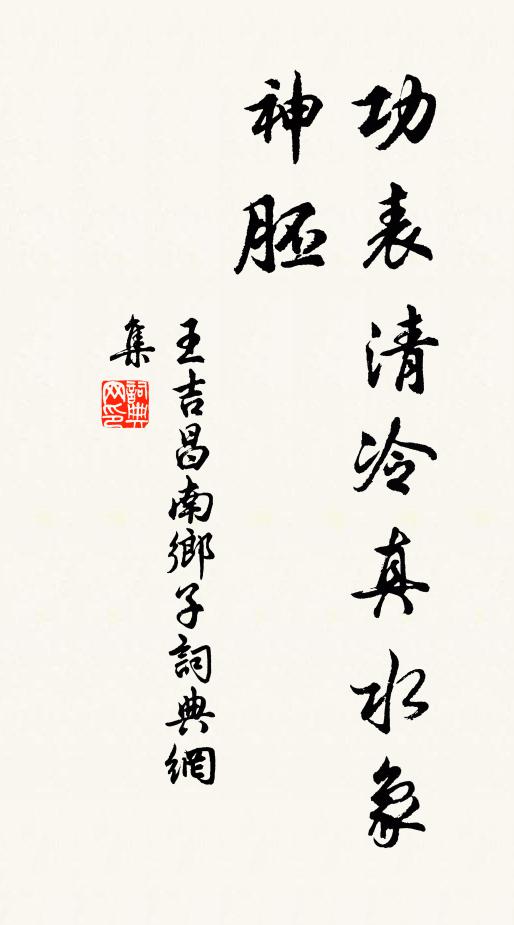 功表清冷真水象
神胚
王吉昌南鄉子詞典網
集
詞典
网印